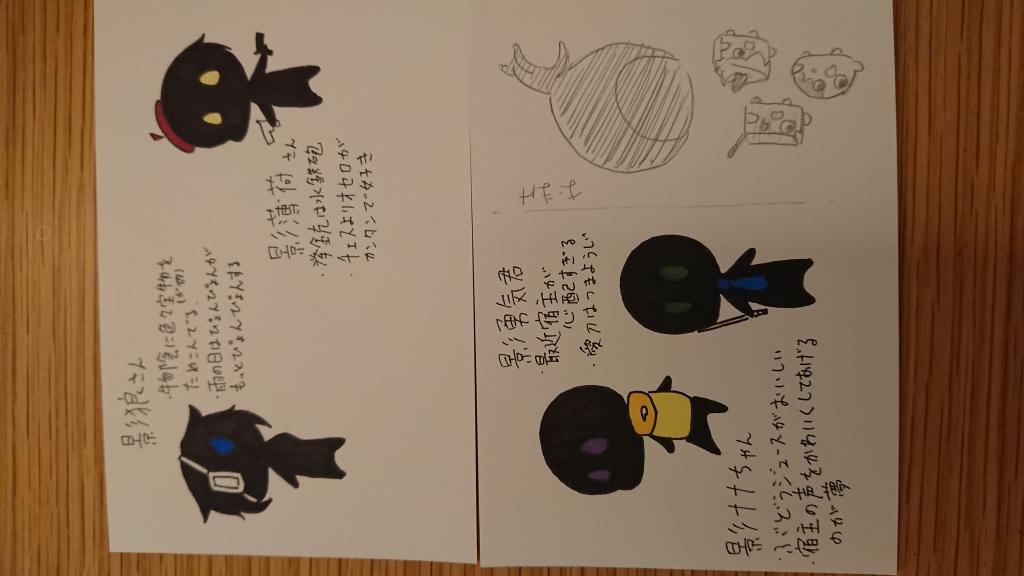 影狼さん
・物陰に色々宝物を
ためこんでる。
・雨の日はぴょんぴょんが
もっとぴょんぴょんする
影薄荷さん
・拳銃は水鉄砲
・チェスよりオセロが
カンタンで好き
影ナナちゃん
・ぶどうジュースがおいしい
・宿主の声をかわいくしてあげる
のが夢
影勇気君
・最近宿主が
心配すぎる
・愛刀はつまようじ